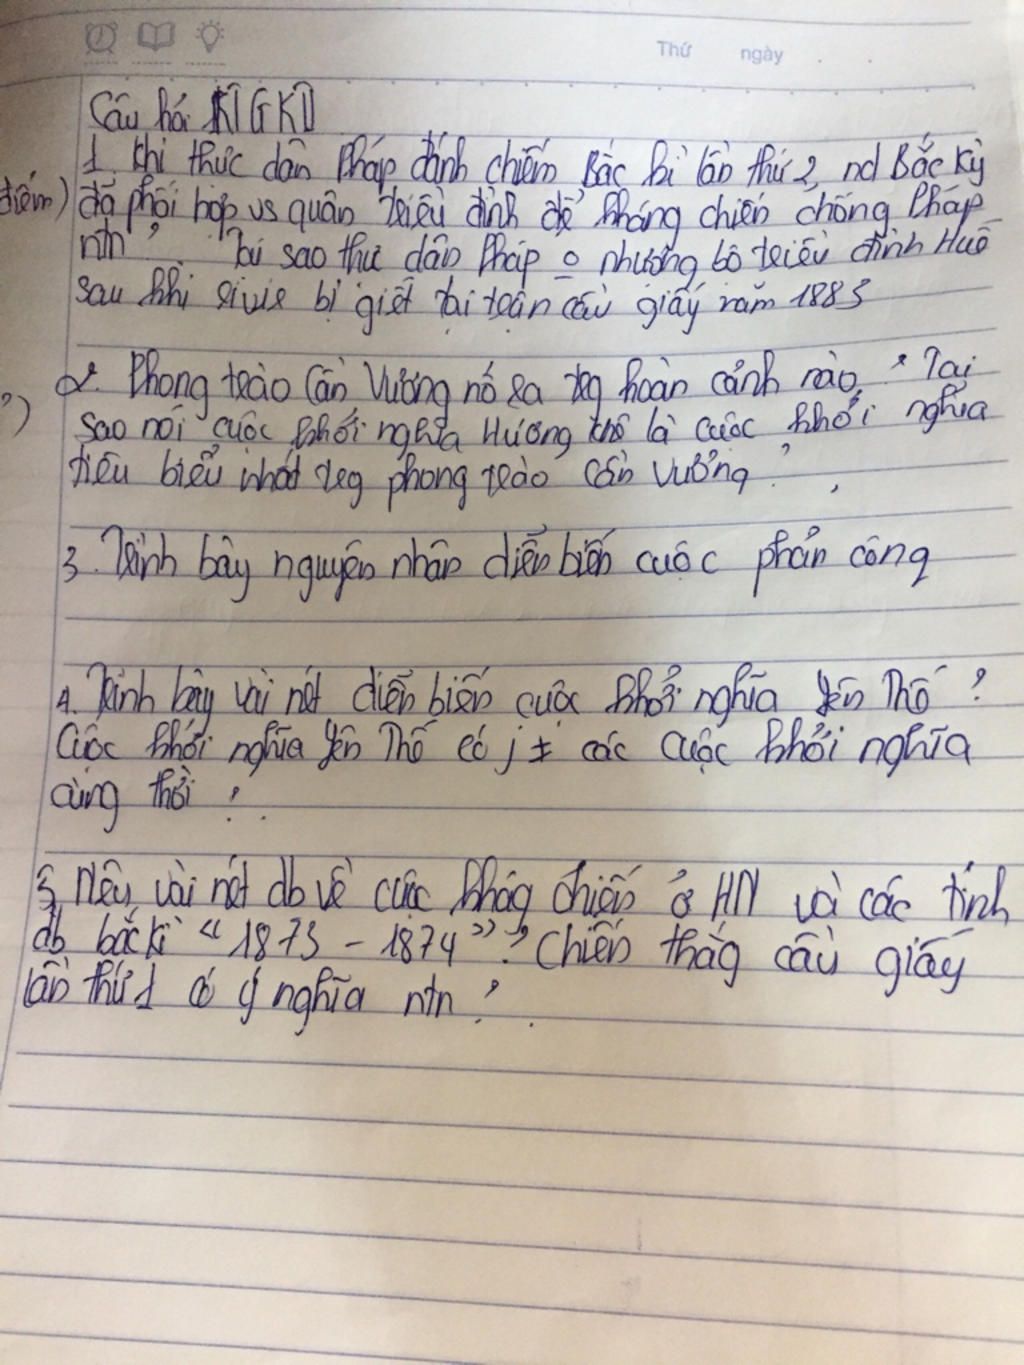 Thứ ngày
Câu hỏi KTGKII
1. Khi thực dân Pháp đánh chiếm Bắc kì lần thứ 2, nd Bắc Kỳ
điểm) đã phối hợp vs quân triều đình để kháng chiến chống Pháp
ntn? Tại sao thư dân Pháp o nhượng bộ triều đình Huế
sau khi rivie bị giết tại trận cầu giấy năm 1883
?) 2. Phong trào Cần Vương nổ ra trg hoàn cảnh nào? Tại
sao nói cuộc khởi nghĩa Hương khê là cuộc khởi nghĩa
tiêu biểu nhất trg phong trào Cần Vương?
3. Trình bày nguyên nhân diễn biến cuộc phản công
4. Trình bày vài nét diễn biến cuộc khởi nghĩa Yên Thế?
Cuộc khởi nghĩa Yên Thế có j ± các cuộc khởi nghĩa
cùng thời?
5, Nêu vài nét db về cuộc khág chiến ở HN và các tỉnh
đb bắc kì "1873 - 1874"? Chiến thắg cầu giấy
lần thứ 1 có ý nghĩa ntn?